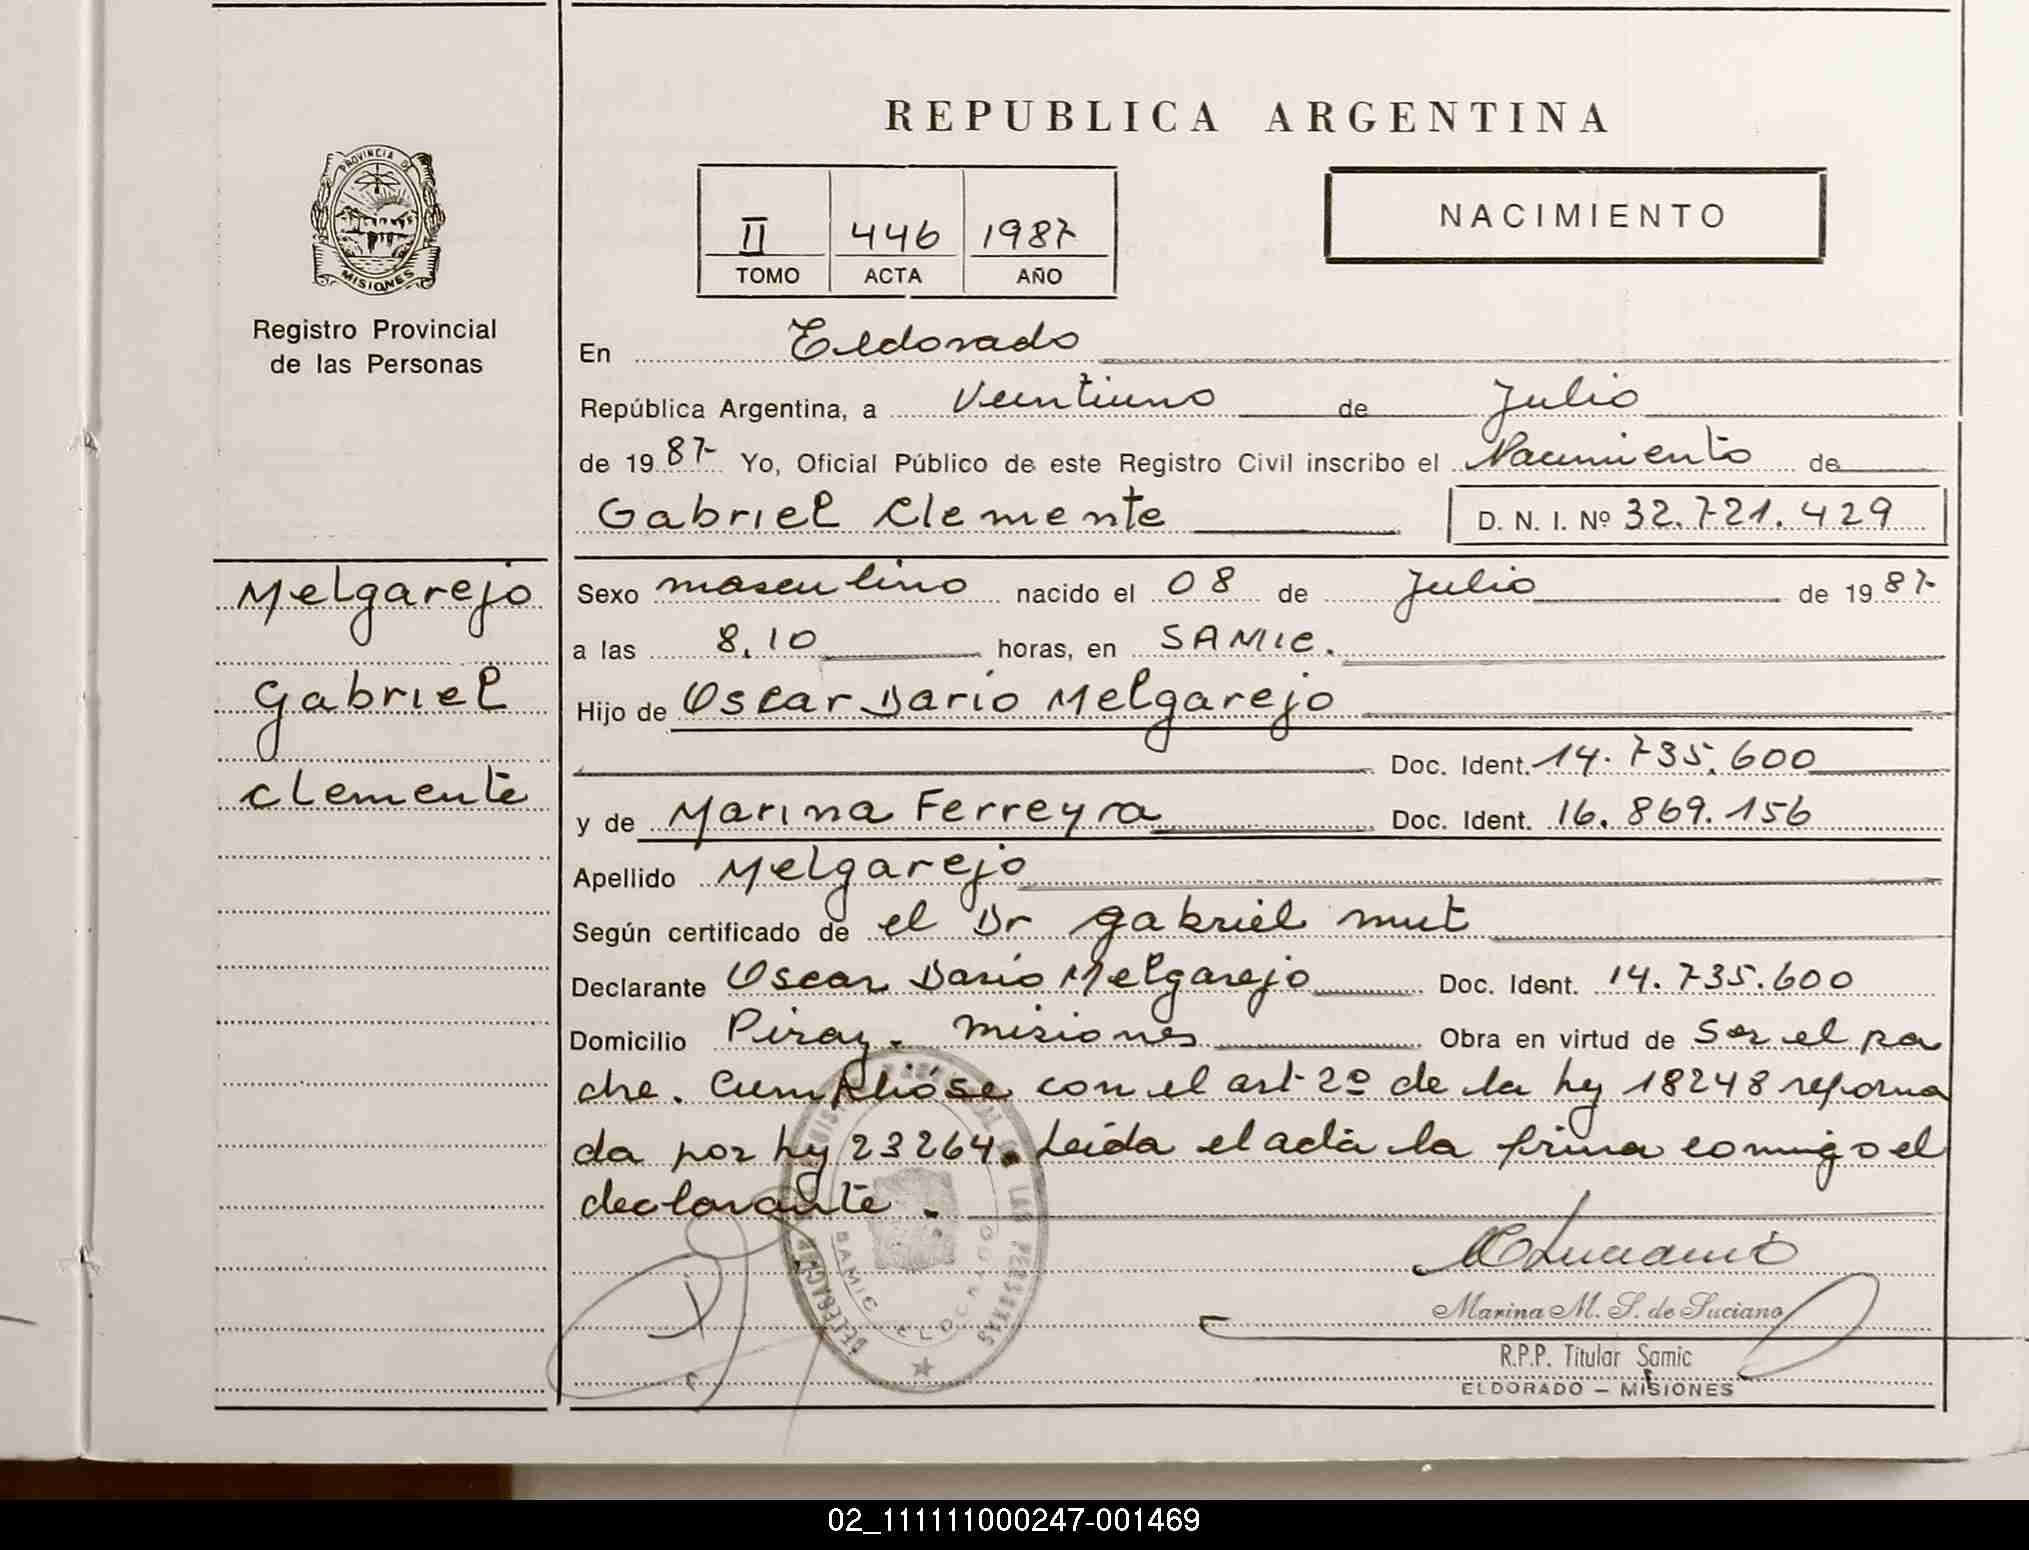 REPUBLICA ARGENTINA
PROVINCIA DE
MISIONES
Registro Provincial
de las Personas
II 446 1987
TOMO ACTA AÑO
NACIMIENTO
En Eldorado
República Argentina, a Veintiuno de Julio
de 1987 Yo, Oficial Público de este Registro Civil inscribo el Nacimiento de
Gabriel Clemente D. N. I. Nº 32.721.429
Melgarejo
Gabriel
Clemente
Sexo masculino nacido el 08 de Julio de 1987
a las 8,10 horas, en SAMIC.
Hijo de Oscar Dario Melgarejo
Doc. Ident. 14.735.600
y de Marina Ferreyra Doc. Ident. 16.869.156
Apellido Melgarejo
Según certificado de el Dr gabriel mut
Declarante Oscar Dario Melgarejo Doc. Ident. 14.735.600
Domicilio Piray. Misiones Obra en virtud de Ser el pa
dre. Cumplióse con el art 2º de la ley 18248 reforma
da por ley 23264. Leída el acta la firma comigo el
declarante.
DELEGACION
LAS PERSONAS
SAMIC ELDORADO
Marina M. S. de Luciano
R.P.P. Titular Samic
ELDORADO — MISIONES
02_111111000247-001469